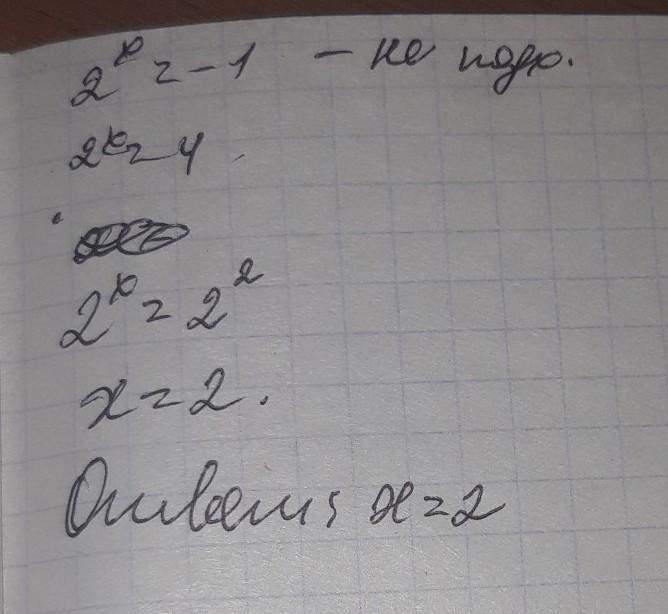 2^x = -1 - не подх.
2^x = 4
2^x = 2^2
x = 2.
Ответ: x = 2